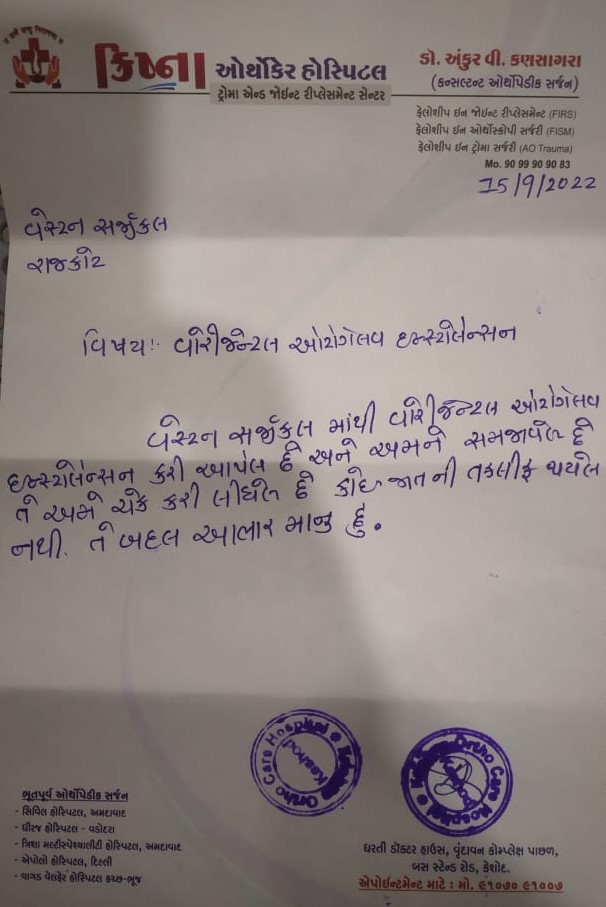 ક્રિષ્ના ઓર્થોકેર હોસ્પિટલ
ટ્રોમા એન્ડ જોઈન્ટ રીપ્લેસમેન્ટ સેન્ટર
ડૉ. અંકુર વી. કણસાગરા
(કન્સલ્ટન્ટ ઓર્થોપેડીક સર્જન)
ફેલોશીપ ઈન જોઈન્ટ રીપ્લેસમેન્ટ (FIRS)
ફેલોશીપ ઈન ઓર્થોસ્કોપી સર્જરી (FISM)
ફેલોશીપ ઈન ટ્રોમા સર્જરી (AO Trauma)
Mo. 90 99 90 90 83
15/9/2022
વેસ્ટન સર્જીકલ
રાજકોટ
વિષય:- વોરીજેન્ટલ ઓટોગેલવ ઇન્સ્ટોલેન્સન
વેસ્ટન સર્જીકલ માંથી વોરીજેન્ટલ ઓટોગેલવ
ઇન્સ્ટોલેન્સન કરી આપેલ છે અને અમને સમજાવેલ છે
તે અમે ચેક કરી લીધેલ છે કોઇ જાત ની તકલીફ થયેલ
નથી. તે બદલ આભાર માનુ છું.
Ortho Care Hospital
Keshod
Ortho Care Hospital
ભૂતપૂર્વ ઓર્થોપેડીક સર્જન
- સિવિલ હોસ્પિટલ, અમદાવાદ
- ધીરજ હોસ્પિટલ - વડોદરા
- ત્રિશા મલ્ટીસ્પેશ્યાલીટી હોસ્પિટલ, અમદાવાદ
- એપોલો હોસ્પિટલ, દિલ્લી
- વાગડ વેલફેર હોસ્પિટલ કચ્છ-ભૂજ
ધરતી ડોક્ટર હાઉસ, વૃંદાવન કોમ્પ્લેક્ષ પાછળ,
બસ સ્ટેન્ડ રોડ, કેશોદ.
એપોઈન્ટમેન્ટ માટે : મો. ૯૧૦૭૦ ૯૧૦૦૭